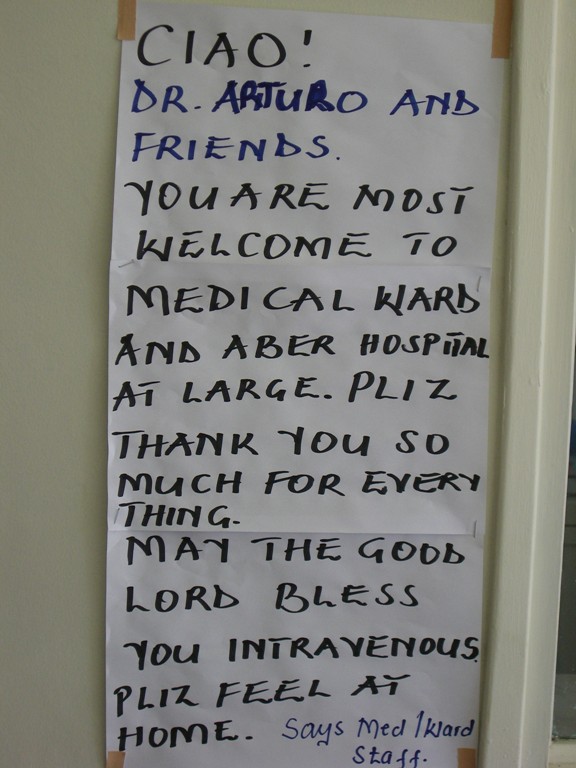 CIAO!
DR. ARTURO AND
FRIENDS.
YOU ARE MOST
WELCOME TO
MEDICAL WARD
AND ABER HOSPITAL
AT LARGE. PLIZ
THANK YOU SO
MUCH FOR EVERY
THING.
MAY THE GOOD
LORD BLESS
YOU INTRAVENOUS.
PLIZ FEEL AT
HOME. Says Med/Ward
Staff.